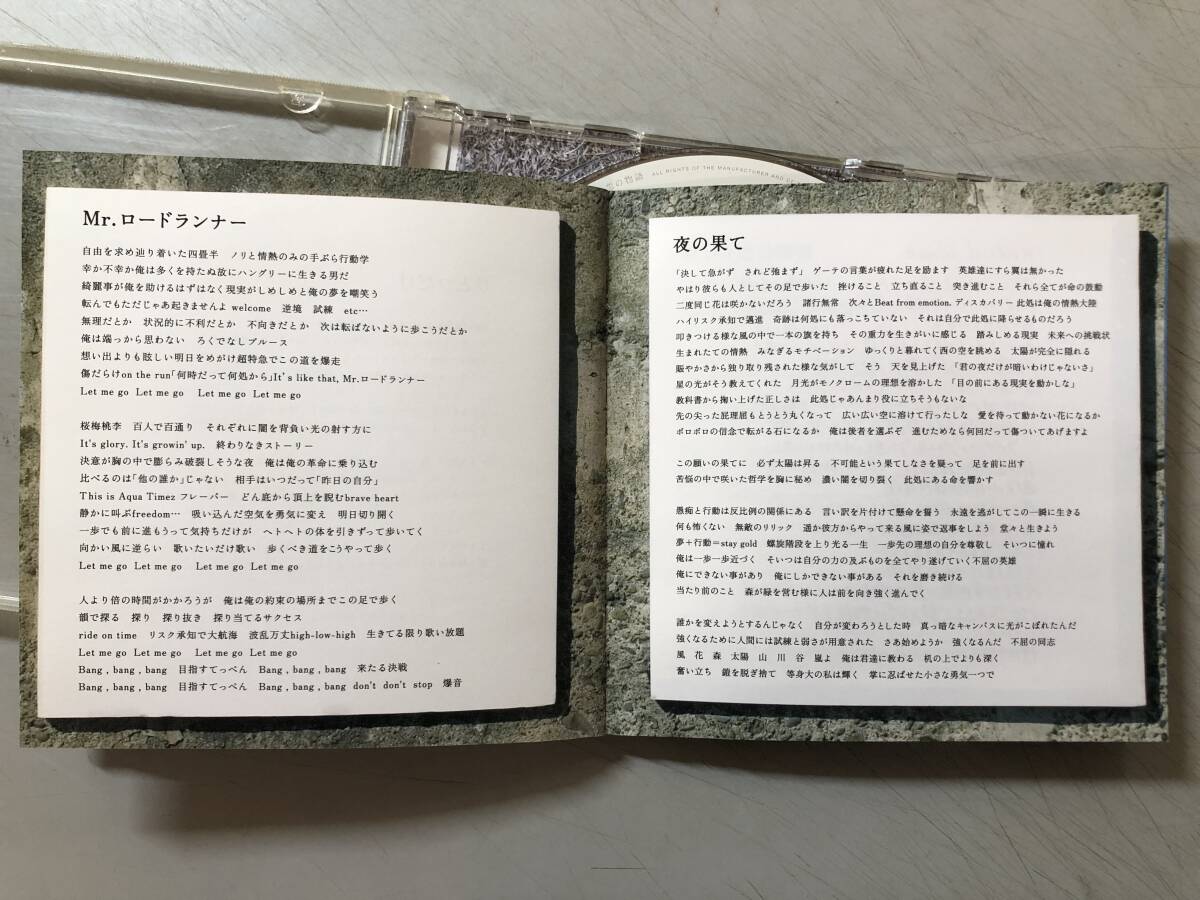 の物語
ALL RIGHTS OF THE MANUFACTURER AND
Mr.ロードランナー
自由を求め辿り着いた四畳半　ノリと情熱のみの手ぶら行動学
幸か不幸か俺は多くを持たぬ故にハングリーに生きる男だ
綺麗事が俺を助けるはずはなく現実がしめしめと俺の夢を嘲笑う
転んでもただじゃあ起きませんよ welcome　逆境　試練　etc…
無理だとか　状況的に不利だとか　不向きだとか　次は転ばないように歩こうだとか
俺は端っから思わない　ろくでなしブルース
想い出よりも眩しい明日をめがけ超特急でこの道を爆走
傷だらけon the run「何時だって何処から」It's like that, Mr.ロードランナー
Let me go　Let me go　Let me go　Let me go
桜梅桃李　百人で百通り　それぞれに闇を背負い光の射す方に
It's glory. It's growin' up.　終わりなきストーリー
決意が胸の中で膨らみ破裂しそうな夜　俺は俺の革命に乗り込む
比べるのは「他の誰か」じゃない　相手はいつだって「昨日の自分」
This is Aqua Timez フレーバー　どん底から頂上を睨むbrave heart
静かに叫ぶfreedom…　吸い込んだ空気を勇気に変え　明日切り開く
一歩でも前に進もうって気持ちだけが　ヘトヘトの体を引きずって歩いてく
向かい風に逆らい　歌いたいだけ歌い　歩くべき道をこうやって歩く
Let me go　Let me go　Let me go　Let me go
人より倍の時間がかかろうが　俺は俺の約束の場所までこの足で歩く
韻で探る　探り　探り抜き　探り当てるサクセス
ride on time　リスク承知で大航海　波乱万丈high-low-high　生きてる限り歌い放題
Let me go　Let me go　Let me go　Let me go
Bang , bang , bang　目指すてっぺん　Bang , bang , bang　来たる決戦
Bang , bang , bang　目指すてっぺん　Bang , bang , bang don't don't stop　爆音
夜の果て
「決して急がず　されど弛まず」　ゲーテの言葉が疲れた足を励ます　英雄達にすら翼は無かった
やはり彼らも人としてその足で歩いた　挫けること　立ち直ること　突き進むこと　それら全てが命の鼓動
二度同じ花は咲かないだろう　諸行無常　次々とBeat from emotion. ディスカバリー 此処は俺の情熱大陸
ハイリスク承知で邁進　奇跡は何処にも落っこちていない　それは自分で此処に降らせるものだろう
叩きつける様な風の中で一本の旗を持ち　その重力を生きがいに感じる　踏みしめる現実　未来への挑戦状
生まれたての情熱　みなぎるモチベーション　ゆっくりと暮れてく西の空を眺める　太陽が完全に隠れる
賑やかさから独り取り残された様な気がして　そう　天を見上げた　「君の夜だけが暗いわけじゃないさ」
星の光がそう教えてくれた　月光がモノクロームの理想を溶かした　「目の前にある現実を動かしな」
教科書から掬い上げた正しさは　此処じゃあんまり役に立ちそうもないな
先の尖った屁理屈もとうとう丸くなって　広い広い空に溶けて行ったしな　愛を待って動かない花になるか
ボロボロの信念で転がる石になるか　俺は後者を選ぶぞ　進むためなら何回だって傷ついてあげますよ
この願いの果てに　必ず太陽は昇る　不可能という果てしなさを疑って　足を前に出す
苦悩の中で咲いた哲学を胸に秘め　濃い闇を切り裂く　此処にある命を響かす
愚痴と行動は反比例の関係にある　言い訳を片付けて懸命を誓う　永遠を逃がしてこの一瞬に生きる
何も怖くない　無敵のリリック　遥か彼方からやって来る風に姿で返事をしよう　堂々と生きよう
夢＋行動＝stay gold　螺旋階段を上り光る一生　一歩先の理想の自分を尊敬し　そいつに憧れ
俺は一歩一歩近づく　そいつは自分の力の及ぶものを全てやり遂げていく不屈の英雄
俺にできない事があり　俺にしかできない事がある　それを磨き続ける
当たり前のこと　森が緑を営む様に人は前を向き強く進んでく
誰かを変えようとするんじゃなく　自分が変わろうとした時　真っ暗なキャンバスに光がこぼれたんだ
強くなるために人間には試練と弱さが用意された　さあ始めようか　強くなるんだ　不屈の同志
風　花　森　太陽　山　川　谷　嵐よ　俺は君達に教わる　机の上でよりも深く
奮い立ち　鎧を脱ぎ捨て　等身大の私は輝く　掌に忍ばせた小さな勇気一つで